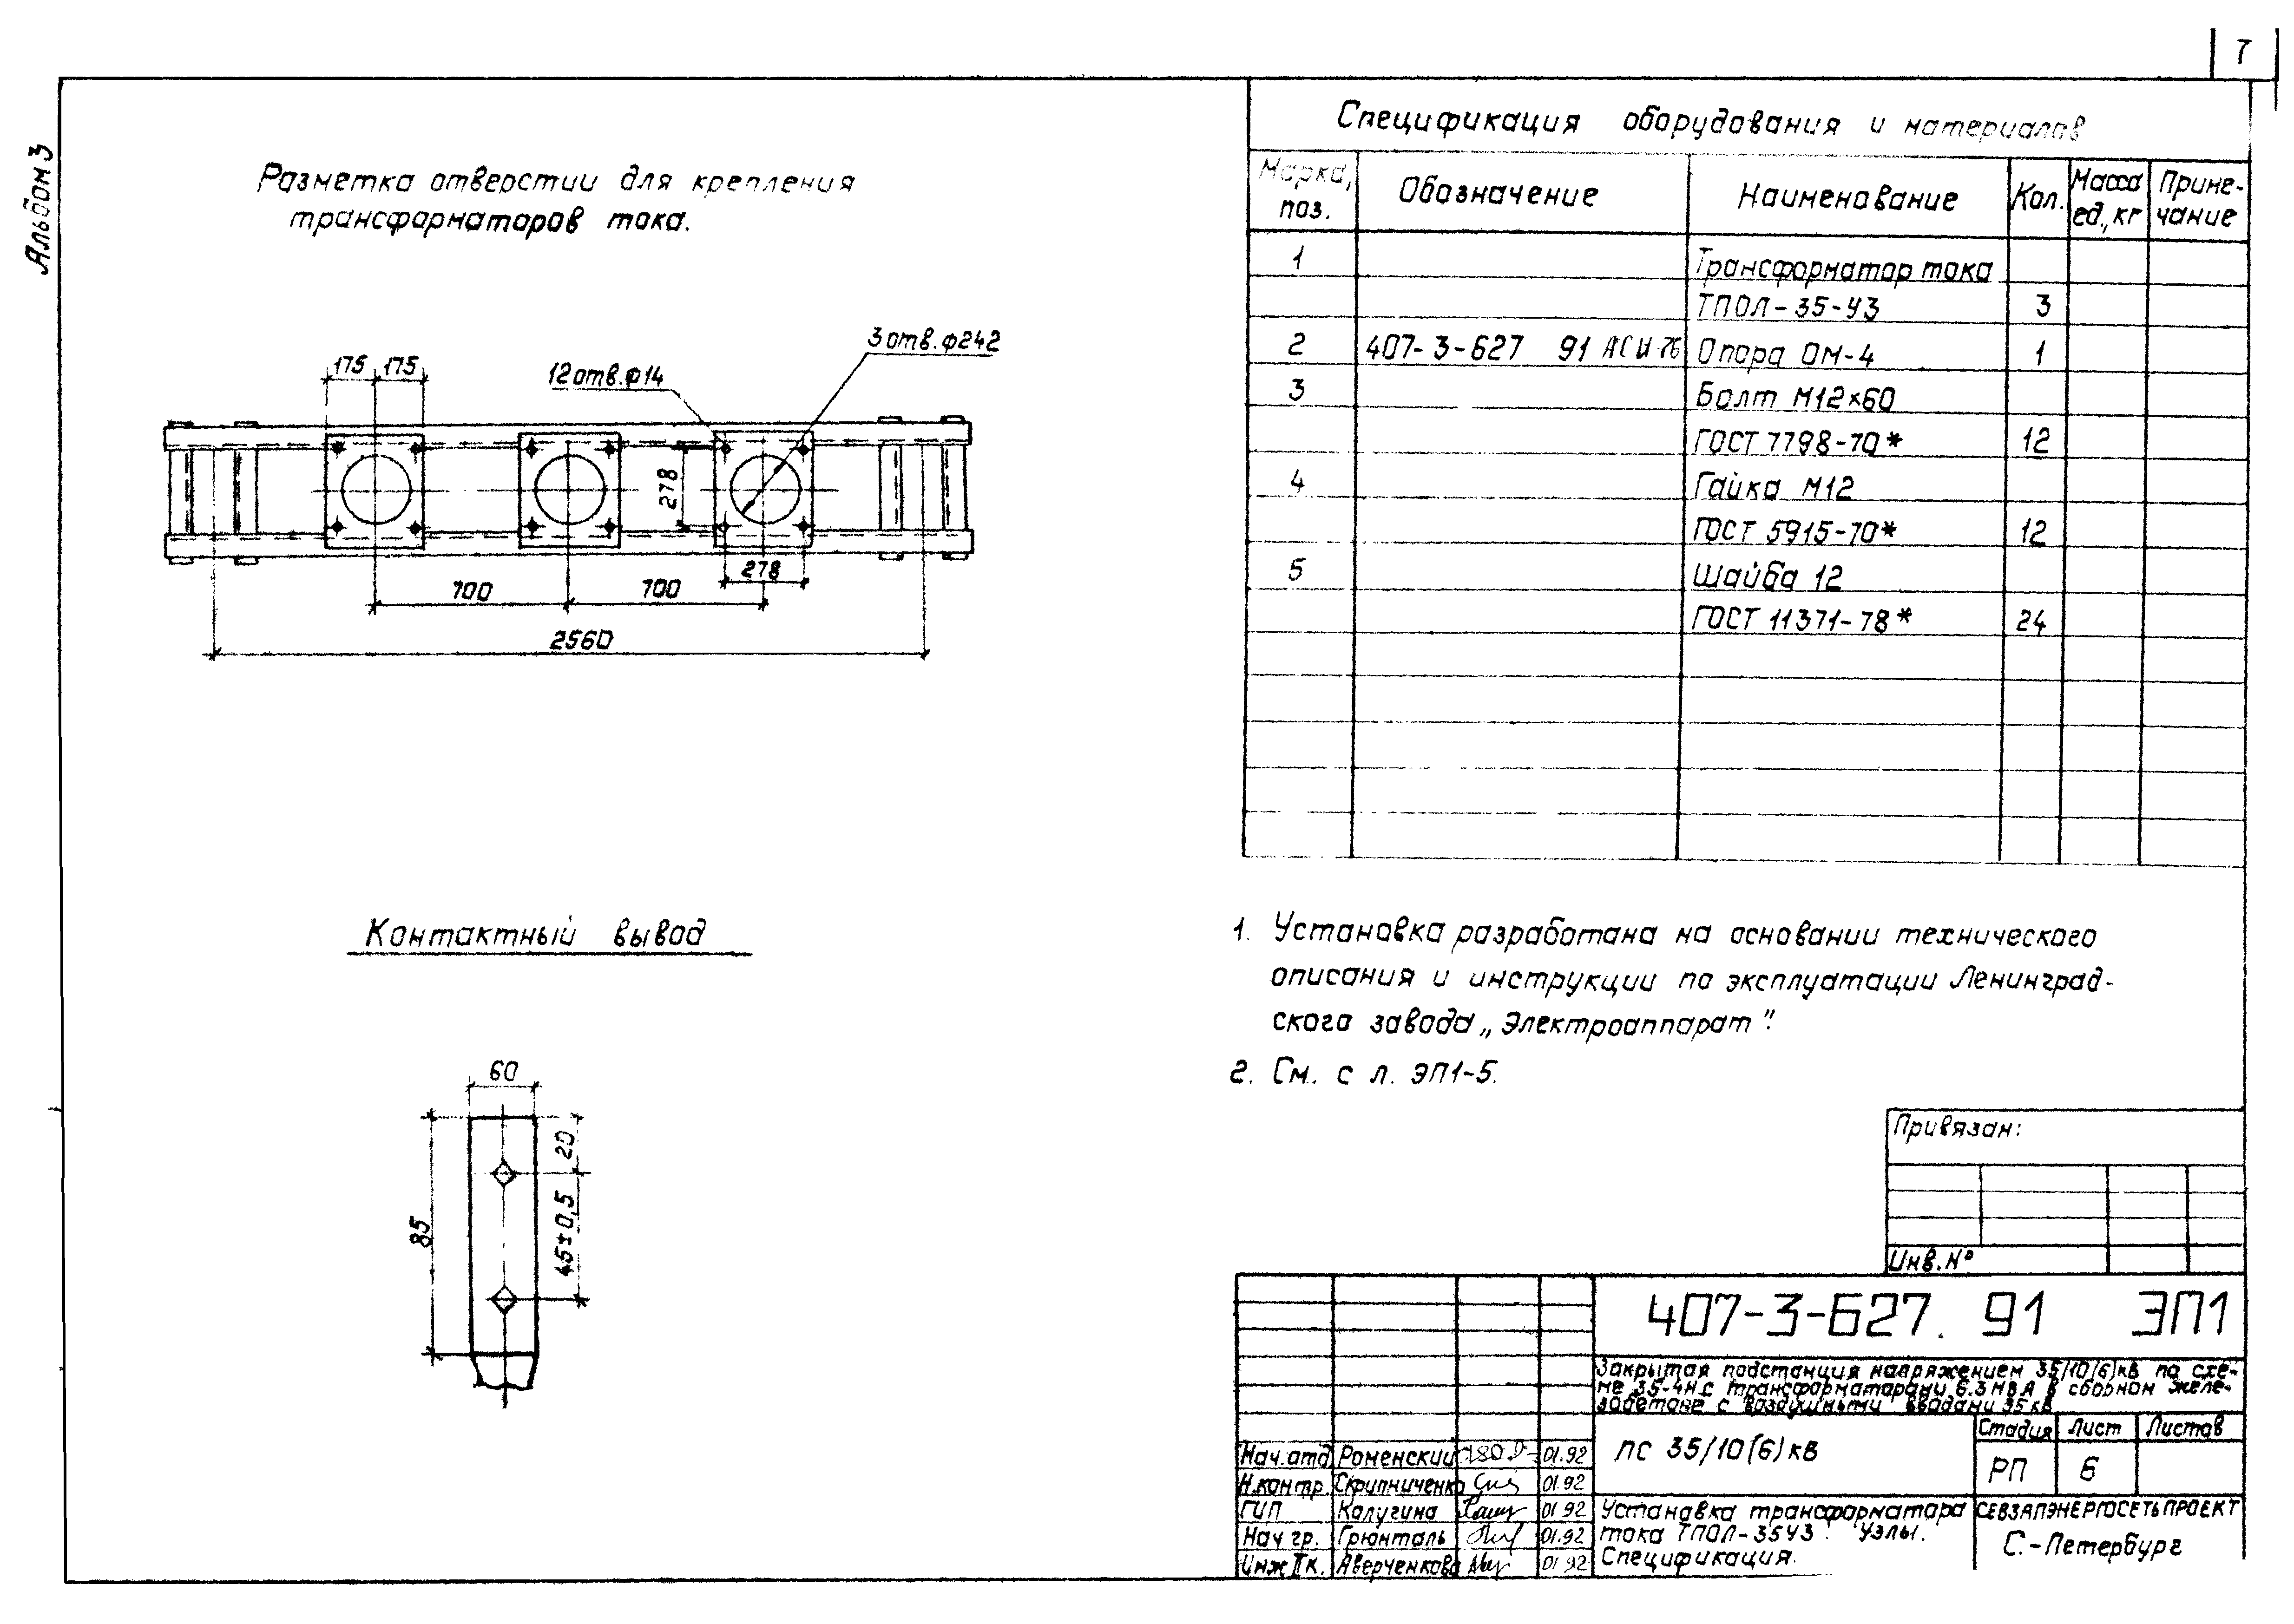 7
Альбом 3
Разметка отверстии для крепления
трансформаторов тока.
175 175
12 отв. ф14
3 отв. ф242
278
278
700 700
2560
Контактный вывод
60
20
45±0,5
85
Спецификация оборудования и материалов
Марка, поз. Обозначение Наименование Кол. Масса ед., кг Приме-чание
1 Трансформатор тока
ТПОЛ-35-У3 3
2 407-3-627 91 Опора ОМ-4 1
3 Болт М12×60
ГОСТ 7798-70* 12
4 Гайка М12
ГОСТ 5915-70* 12
5 Шайба 12
ГОСТ 11371-78* 24
1. Установка разработана на основании технического
описания и инструкции по эксплуатации Ленинград-
ского завода „Электроаппарат".
2. См. с л. ЭП1-5.
Привязан:
Инв. №
407-3-627. 91 ЭП1
Закрытая подстанция напряжением 35/10(6)кв по схе-
ме 35-4Н с трансформаторами 6.3 МВА в сборном желе-
зобетоне с воздушными вводами 35 кв
ПС 35/10(6) кв
Стадия Лист Листов
РП 6
Нач. отд. Роменский 01.92
Н.контр. Скрипниченко 01.92
ГИП Калугина 01 92
Нач гр. Грюнталь 01.92
Инж II к. Аверченкова 01 92
Установка трансформатора
тока ТПОЛ-35У3. Узлы.
Спецификация.
СЕВЗАПЭНЕРГОСЕТЬПРОЕКТ
С.-Петербург